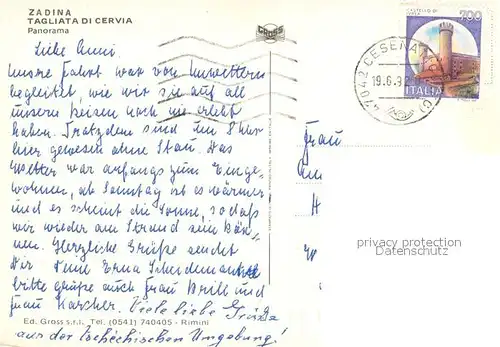 ZADINA
TAGLIATA DI CERVIA
Panorama
GROSS
Liebe Anni
unsre Fahrt war von Unwettern
begleitet, wie wir sie auf all
unsere Reisen noch nie erlebt
haben. Trotzdem sind um 8 Uhr
hier gewesen ohne Stau. Das
Wetter war anfangs zum Einge-
wöhnen, ab Sonntag ist es wärmer
und es scheint die Sonne, so daß
wir wieder am Strand sein kön-
nen. Herzliche Grüße sendet
Dir Deine Erna
bitte grüße auch Frau Brill und
Frau Karcher. Viele liebe Grüße
aus der tschechischen Umgebung!
Ed. Gross s.r.l. Tel. (0541) 740405 - Rimini
Frau
CASTELLO DI
700
ITALIA
47042 CESENATICO
19.6.9
privacy protection
Datenschutz